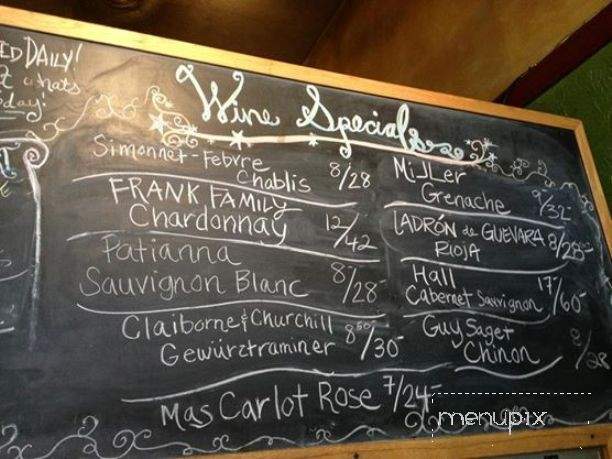 ED DAILY!
whats
day!
Wine Specials
Simonnet-Febvre
Chablis 8/28
FRANK FAMILY
Chardonnay 12/42
Patianna
Sauvignon Blanc 8/28-
Claiborne & Churchill
Gewürztraminer 8⁵⁰/30-
Mas Carlot Rose 7/24-
MiJLer
Grenache 9/32-
LADRÓN de GUEVARA
RIOJA 8/28
Hall
Cabernet Sauvignon 17/60-
Guy Saget
Chinon 8/28
menupix